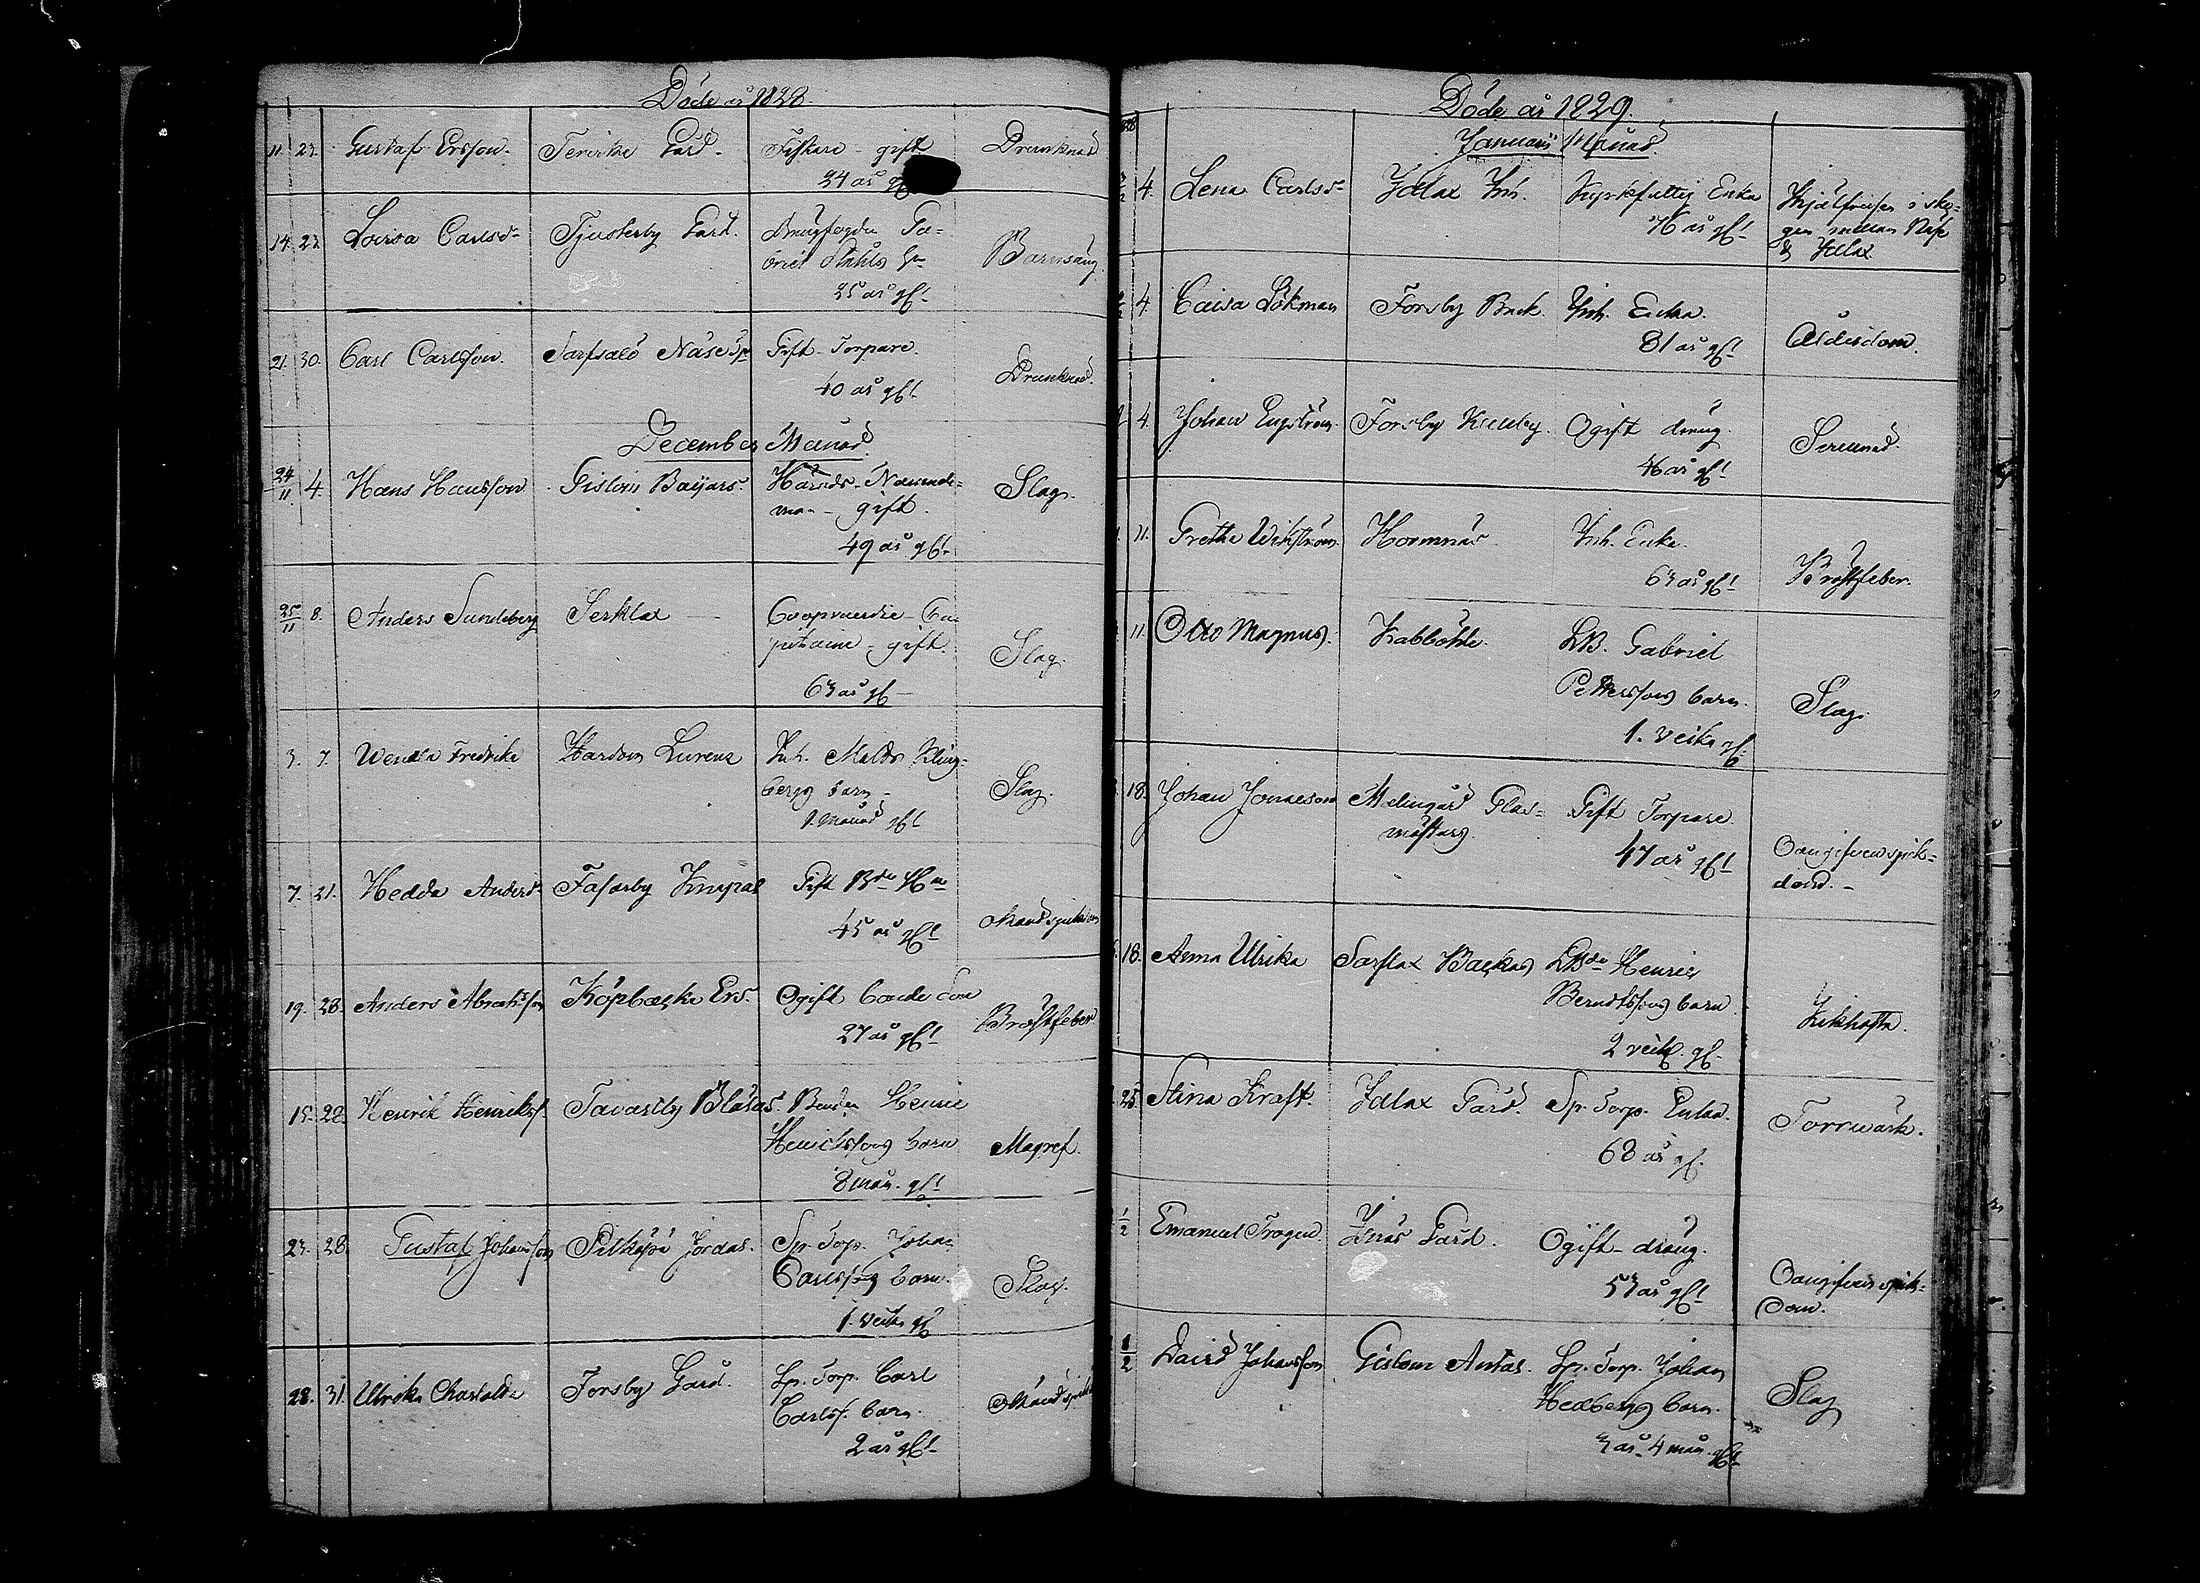 Döde år 1828.
11. 23. Gustaf Ersson. Tervike Gård. Fiskare - gift Drunknad
34 år gl
14. 23. Lovisa Carlsd- Tjusterby Gård.
Stahls Hu Barnsäng.
35 år gl
21. 30. Carl Carlsson. Sarfsalö Näse Gift Torpare.
40 år gl Drunknad.
December Månad.
24/11 4. Hans Hansson Gislom Baijars. Härads-Nämnde-
man - gift. Slag.
49 år gl
25/11 8. Anders Sundeberg Serklax Coopvaerdie-Ca-
pitaine - gift. Slag.
63 år gl
3. 7. Wendla Fredrika Hardom Lurens Inh. Matds Kling-
bergs barn - Slag.
1. Månad gl
7. 21. Hedda Andersd Fasarby Knapas Gift
45 år gl
19. 28. Anders Abrahsson Köpbacka Ers. Ogift bonde son
27 år gl Bröstfeber
15. 22. Henrik Henriksf. Tavastby Blåsas. Bonden Henric
Henricssons barn Magref.
8 mån. gl
23. 28. Gustaf Johansson Pitkäpä Jordas. Sp. Torp. Johan
Carlssons barn. Slag.
1. veck gl
28. 31. Ulrika Charlotta Forsby Gård. Sp. Torp. Carl
Carlss. barn.
2 år gl
Döde år 1829.
Januarii Månad.
4. Lena Carlsd- Idlax Inh. Kyrkfattig Enka
76 år gl Ihjälfrusen i sko-
gen mellan Näse
& Idlax
4. Caisa Lökman Forsby Bruk. Inh. Enka.
81 år gl Ålderdom.
4. Johan Engström. Forsby Ogift dräng.
46 år gl
11. Gretha Wikström Hormnäs Inh. Enka.
63 år gl Bröstfeber.
11. Otto Magnus. Kabböhle. LB. Gabriel
Petterssons barn. Slag.
1. veika gl.
18. Johan Jonaeson Malmgård Glas- Gift Torpare.
mästars. 47 år gl Oangifven sjuk-
dom. -
18. Anna Ulrika Sarflax Backas LBdn Henric
Berndtssons barn Kikhosta.
2 veck. gl.
25. Stina Kraft. Idlax Gård. Sp. Torp. Enka.
68 år gl. Torrwärk.
1/2 Emanuel Trogen. Gård. Ogift dräng.
53 år gl Oangifven sjuk-
dom.
8/2 David Johansson Gislom Antas. Sp. Torp. Johan
Hedbergs barn. Slag
3 år 4 mån. gl